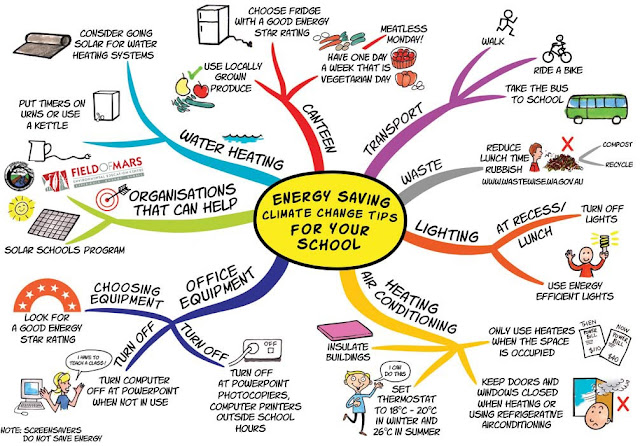 CONSIDER GOING
SOLAR FOR WATER
HEATING SYSTEMS
CHOOSE FRIDGE
WITH A GOOD ENERGY
STAR RATING
MEATLESS
MONDAY!
USE LOCALLY
GROWN
PRODUCE
HAVE ONE DAY
A WEEK THAT IS
VEGETARIAN DAY
PUT TIMERS ON
URNS OR USE
A KETTLE
WATER HEATING
CANTEEN
TRANSPORT
WALK
RIDE A BIKE
TAKE THE BUS
TO SCHOOL
WASTE
REDUCE
LUNCH TIME
RUBBISH
WWW.WASTEWISEWA.GOV.AU
COMPOST
RECYCLE
FIELD OF MARS
ORGANISATIONS
THAT CAN HELP
SOLAR SCHOOLS PROGRAM
ENERGY SAVING
CLIMATE CHANGE TIPS
FOR YOUR
SCHOOL
LIGHTING
AT RECESS/
LUNCH
TURN OFF
LIGHTS
USE ENERGY
EFFICIENT LIGHTS
OFFICE
EQUIPMENT
CHOOSING
EQUIPMENT
LOOK FOR
A GOOD ENERGY
STAR RATING
TURN OFF
TURN OFF
I HAVE TO
TEACH A CLASS!
TURN COMPUTER
OFF AT POWERPOINT
WHEN NOT IN USE
NOTE: SCREENSAVERS
DO NOT SAVE ENERGY
OFF
TURN OFF
AT POWERPOINT
PHOTOCOPIERS,
COMPUTER PRINTERS
OUTSIDE SCHOOL
HOURS
HEATING
AIR CONDITIONING
INSULATE
BUILDINGS
I CAN
DO THIS
SET
THERMOSTAT
TO 18°C - 20°C
IN WINTER AND
26°C IN SUMMER
ONLY USE HEATERS
WHEN THE SPACE
IS OCCUPIED
THEN
POWER
BILL
NOW
POWER
BILL
KEEP DOORS AND
WINDOWS CLOSED
WHEN HEATING OR
USING REFRIGERATIVE
AIRCONDITIONING